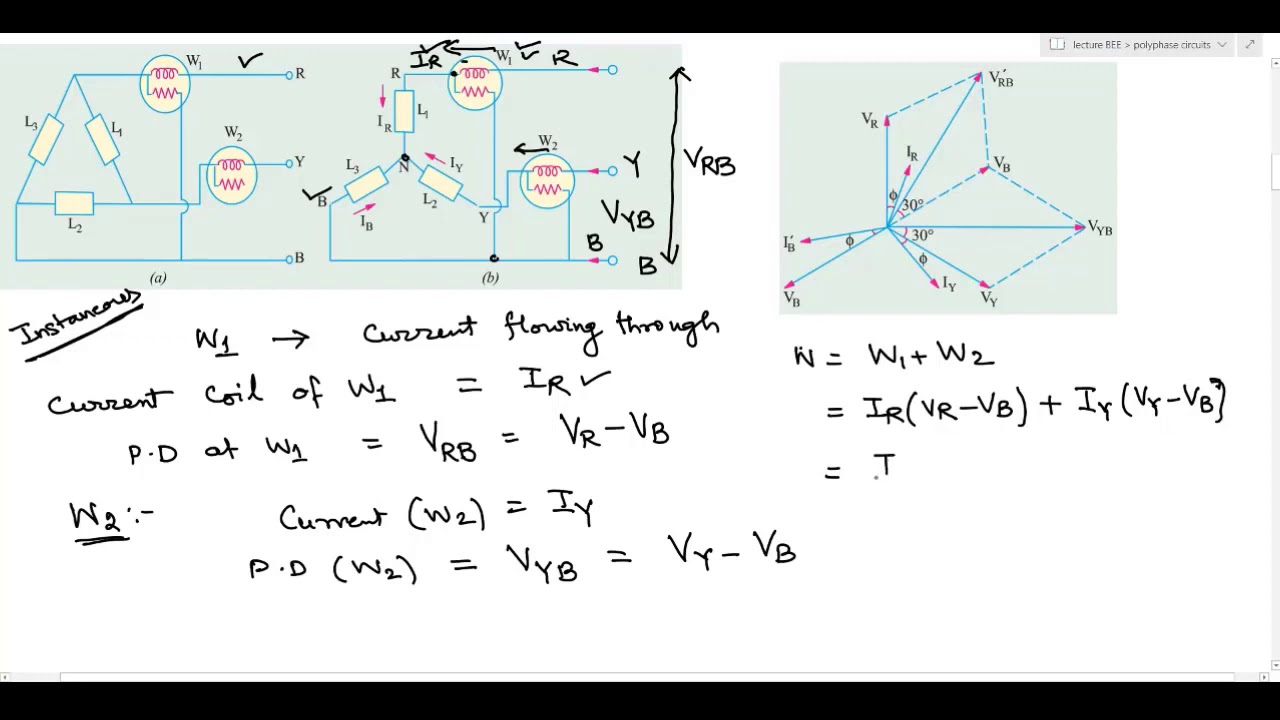 lecture BEE > polyphase circuits
W1 R
L3 L1
W2
Y
L2
B
(a)
IR W1 R
R
IR L1
N
L3 IY W2
B L2 Y
IB Y
VRB
VYB
B
B
(b)
V'RB
VR
IR VB
φ 30°
VYB
I'B φ 30°
φ
IY
VB VY
Instaneous
W1 → Current flowing through
Current coil of W1 = IR ✓
P.D at W1 = VRB = VR − VB
W2 :- Current (W2) = IY
P.D (W2) = VYB = VY − VB
W = W1 + W2
= IR (VR − VB) + IY (VY − VB)
= I